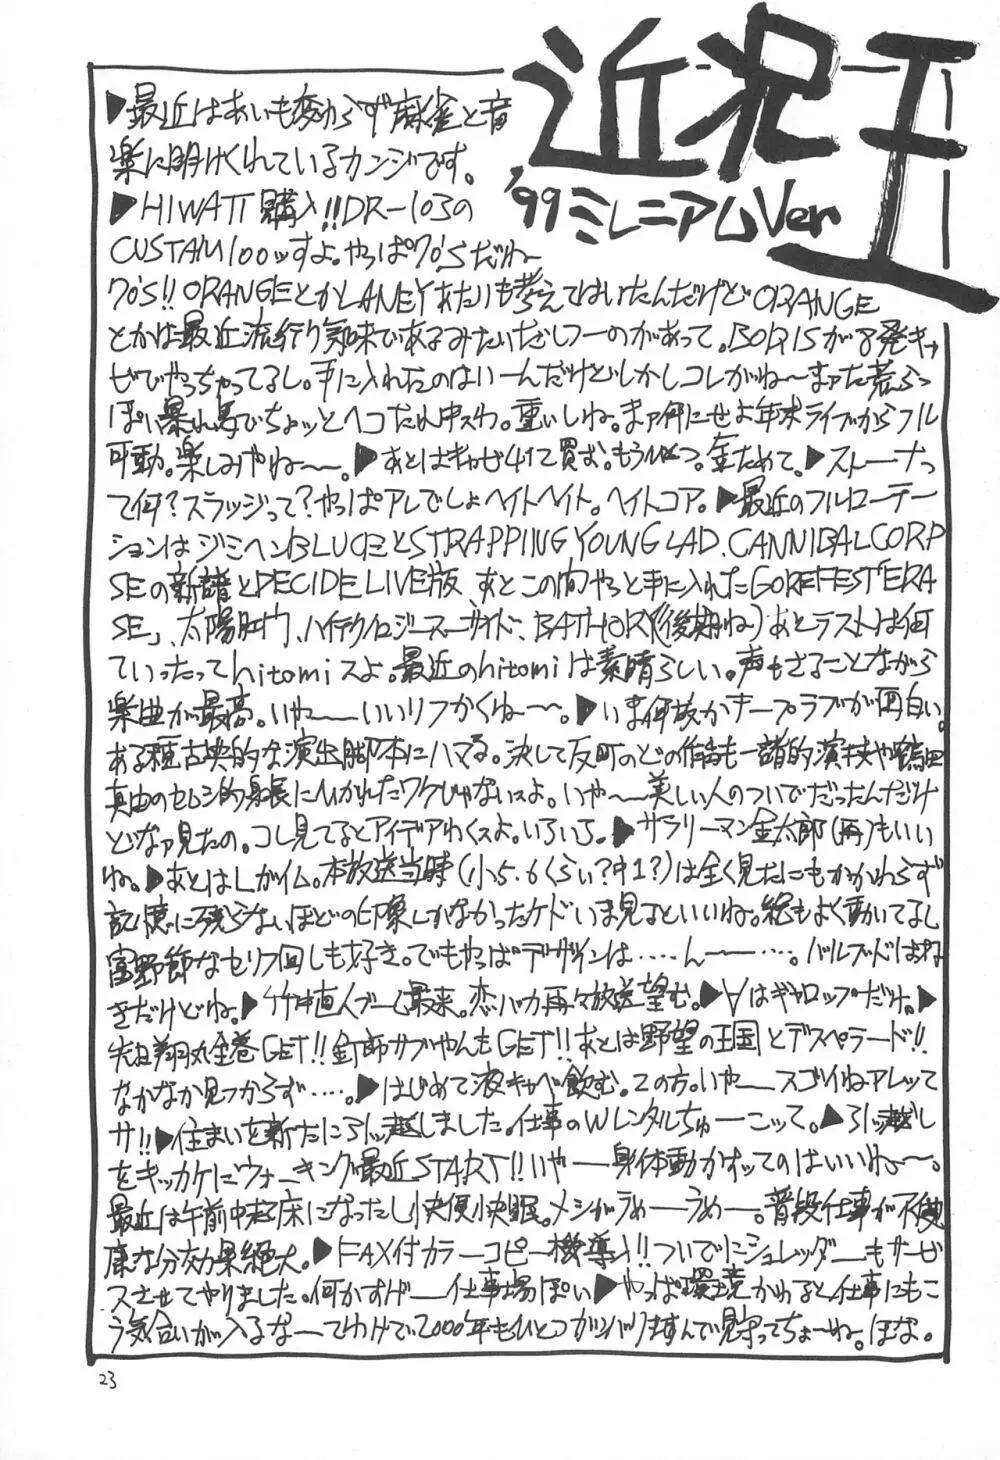 近況王
'99ミレニアムVer
▶最近はあいも変わらず麻雀と音
楽に明けくれているカンジです。
▶HIWATT購入!!DR-103の
CUSTAM100ッすよ。やっぱ70'Sだね〜
70'S!!ORANGEとかLANEYあたりも考えてはいたんだけどORANGE
とかは最近流行り気味であるみたいだしつーのがあって。BORISが8発キャ
ビでやっちゃってるし。手に入れたのはいーんだけどしかしコレがね〜まァた荒らっ
ぽい暴れ馬でちょッとヘコたれ中スわ。重いしね。まァ何にせよ年末ライブからフル
可動。楽しみやね〜〜。▶あとはキャビ4つて買む。もういっこ。金ためて。▶ストーナっ
て何?スラッジって?やっぱアレでしょヘイトヘイト。ヘイトコア。▶最近のフルローテー
ションはジミヘンBLUEとSTRAPPING YOUNG LAD、CANNIBAL CORP
SEの新譜とDECIDE LIVE版、あとこの間やっと手に入れたGOREFEST「ERA
SE」、太陽肛門、ハイテクノロジースーサイド、BATHORY(後期ね)あとラストは何
ていったってhitomiスよ。最近のhitomiは素晴らしい。声もさることながら
楽曲が最高。いや〜〜いいリフかくね〜〜。▶いま何故かオープラブが面白い。
ある種古典的な演出脚本にハマる。決して反町のどの作品も一諸的演技や鶴田
真由のセムシ的身長にひかれたワケじゃないスよ。いや〜〜美しい人のついでだったんだけ
どなァ見たの。コレ見てるとアイデアわくスよ。いろいろ。▶サラリーマン金太郎(再)もいい
ね。▶あとはLガイム。本放送当時(小5.6くらい?中1?)は全く見たにもかかわらず
記憶に残らないほどの印象しかなかったケドいま見るといいね。絵もよく動いてるし
富野節なセリフ回しも好き。でもやっぱデザインは……ん〜〜……。バルブドはすね
きだけどね。▶竹中直人ブーム最来。恋バカ再々放送望む。▶∀はギャロップだけ。▶
先日翔丸全巻GET!!釘師サブやんもGET!!あとは野望の王国とデスペラード!!
なかなか見つからず……。▶はじめて液キャベ飲む。2の方。いや〜スゴイねアレッて
サ!!▶住まいを新たに引ッ越しました。仕事のWレンタルちゅーこッて。▶引ッ越し
をキッカケにウォーキング最近START!!いや〜身体動かすッてのはいいね〜〜。
最近は午前中起床になったし快便快眠。メシがうめーうめー。普段仕事が不健
康な分効果絶大。▶FAX付カラーコピー機導入!!ついでにシュレッダーもサービ
スさせてやりました。何かすげー仕事場ぽい▶やっぱ環境かわると仕事にもこ
う気合いが入るなーてわけで2000年もひとつガンバりますんで見守ってちょーね。ほな。
23